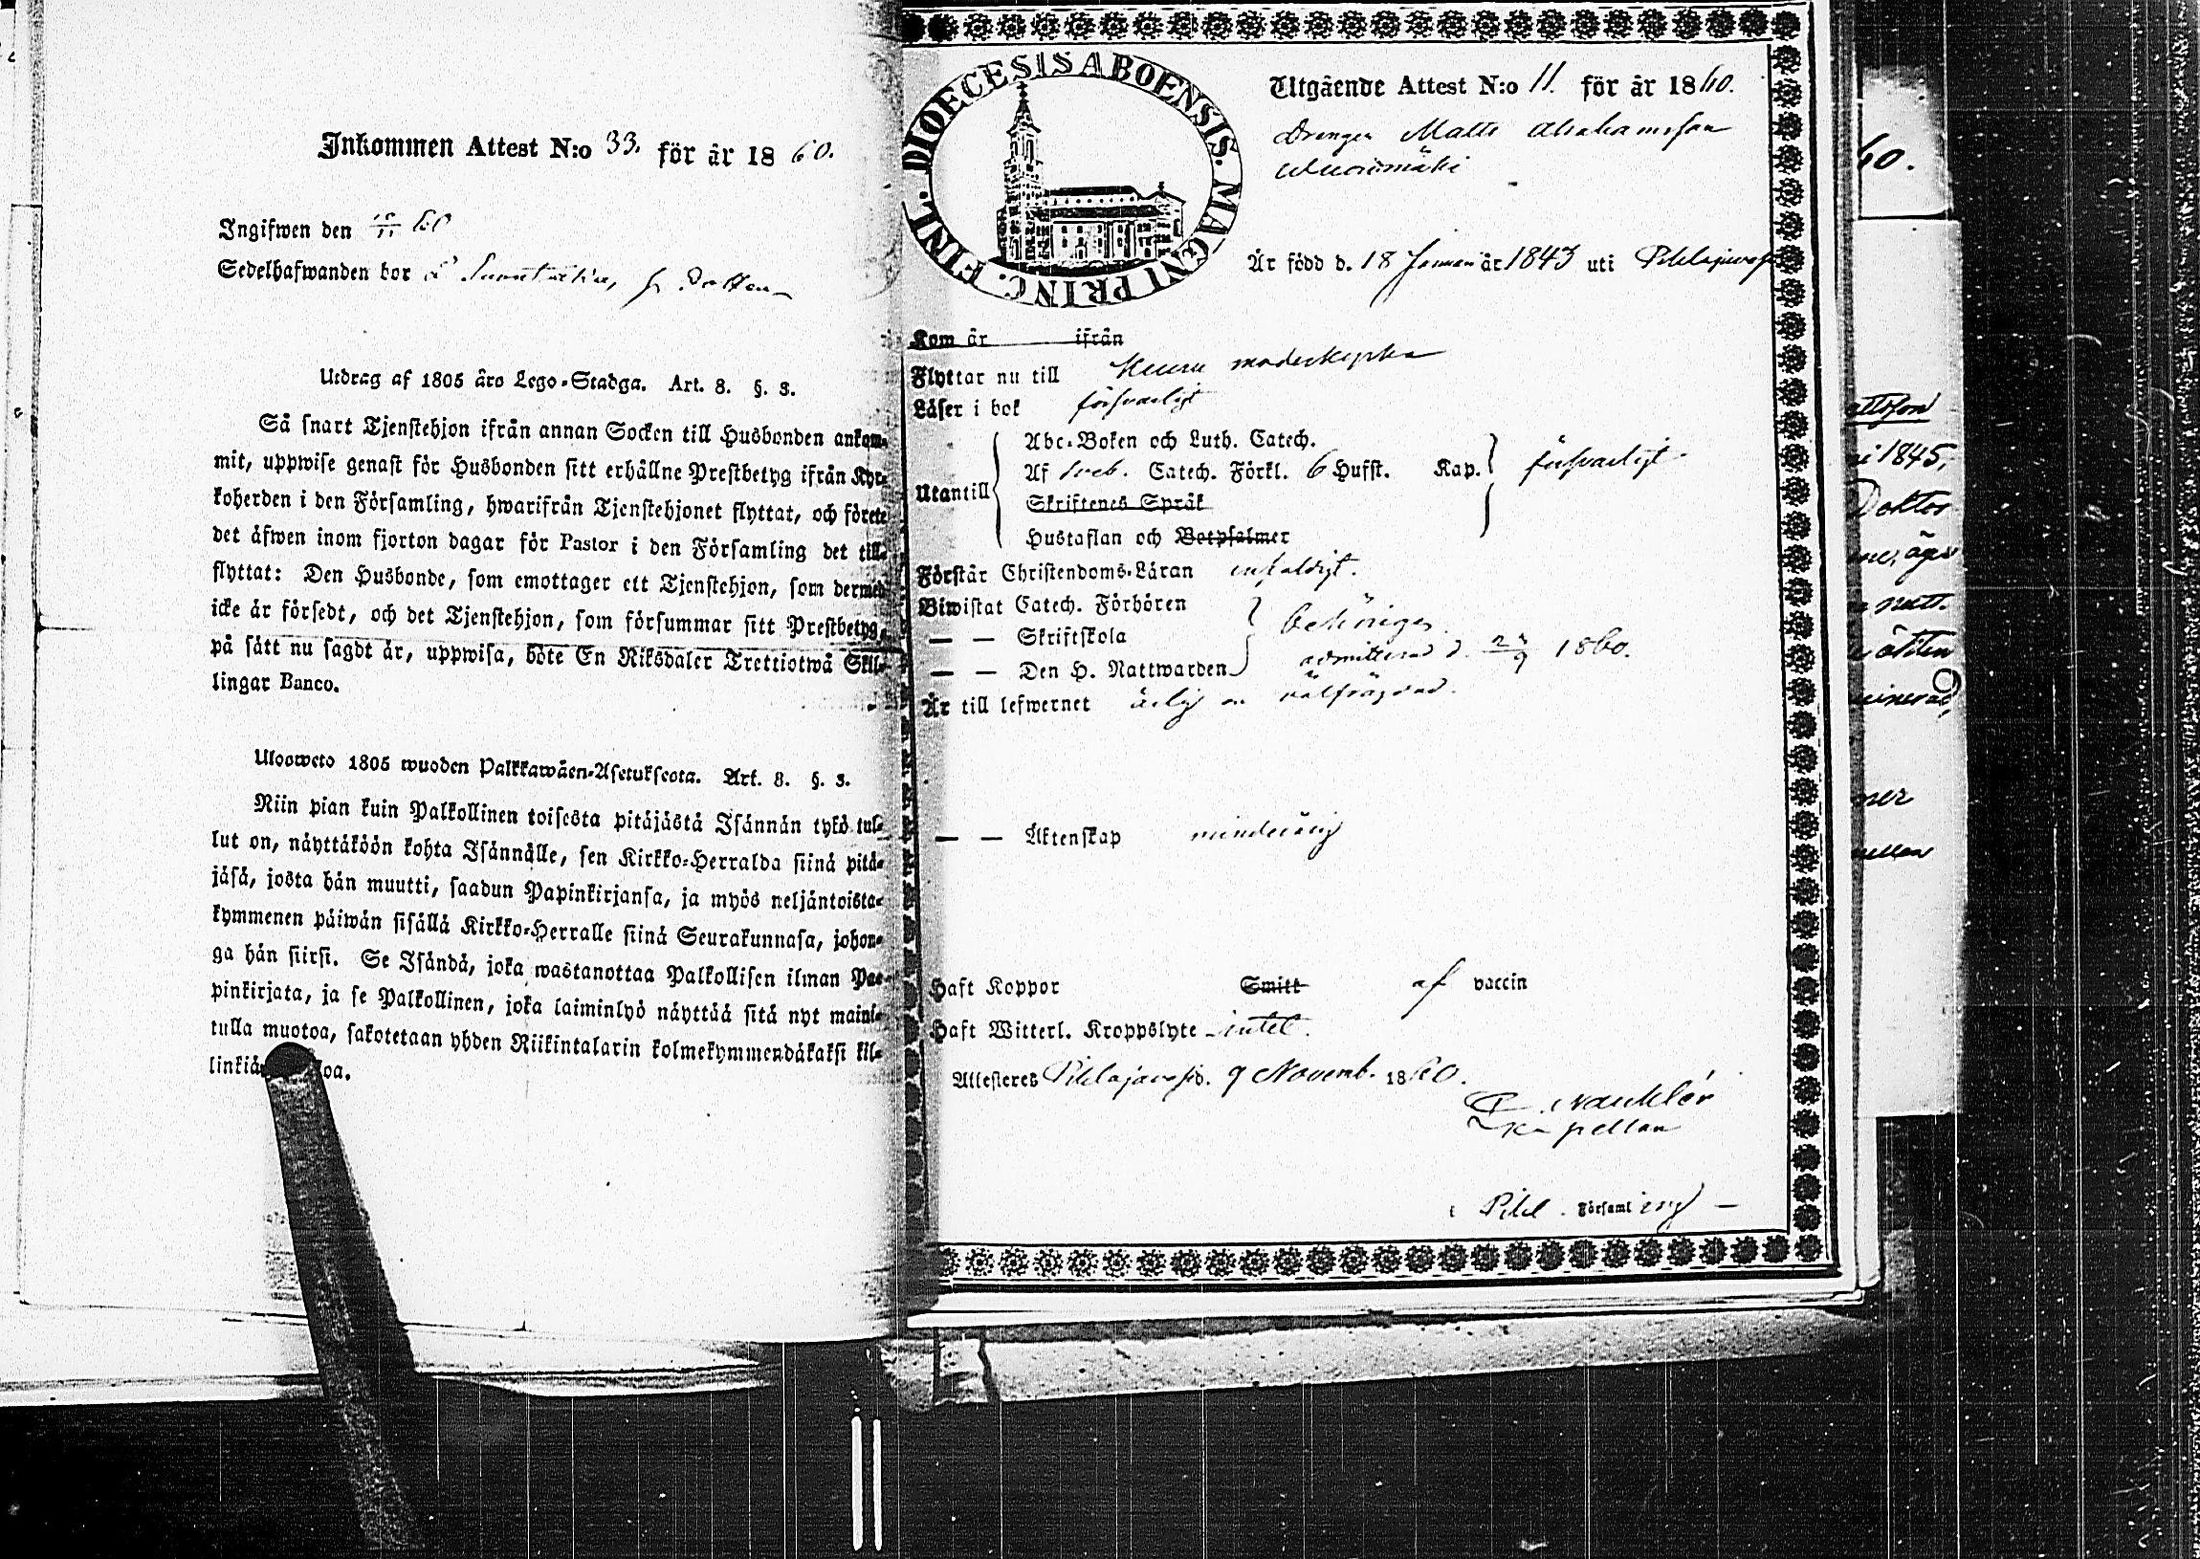 Inkommen Attest N:o 33. för år 1860.
Ingifwen den 60
Sedelhafwanden bor
Utdrag af 1805 års Lego-Stadga. Art. 8. §. 3.
Så snart Tjenstehjon ifrån annan Socken till Husbonden ankom-
mit, uppwise genast för Husbonden sitt erhållne Prestbetyg ifrån Kyr-
koherden i den Församling, hwarifrån Tjenstehjonet flyttat, och förete
det äfwen inom fjorton dagar för Pastor i den Församling det till-
flyttat: Den Husbonde, som emottager ett Tjenstehjon, som dermed
icke är försedt, och det Tjenstehjon, som försummar sitt Prestbetyg,
på sätt nu sagdt är, uppwisa, böte En Riksdaler Trettiotwå Skil-
lingar Banco.
Ulosweto 1805 wuoden Palkkawäen-Asetuksesta. Art. 8. §. 3.
Niin pian kuin Palkollinen toisesta pitäjästä Isännän tykö tul-
lut on, näyttäköön kohta Isännälle, sen Kirkko-Herralda siinä pitä-
jäsä, josta hän muutti, saadun Papinkirjansa, ja myös neljäntoista-
kymmenen päiwän sisällä Kirkko-Herralle siinä Seurakunnasa, johon-
ga hän siirsi. Se Isändä, joka wastanottaa Palkollisen ilman Pa-
pinkirjata, ja se Palkollinen, joka laiminlyö näyttää sitä nyt maini-
tulla muotoa, sakotetaan yhden Riikintalarin kolmekymmendäkaksi kil-
linkiä
FINL. DIOECESIS ABOENSIS. MAGNI PRINC.
Utgående Attest N:o 11. för år 1860.
Drengen Matts Abrahamsson
Är född d. 18 Januari år 1843 uti Pihlajavesi
Kom år ifrån
Flyttar nu till Keuru moderkyrka
Läser i bok försvarligt
Abc-Boken och Luth. Catech.
Utantill Af Sveb. Catech. Förkl. 6 Hufst. Kap. försvarligt
Skriftenes Språk
Hustaflan och Botpsalmer
Förstår Christendoms-Läran enfaldigt.
Biwistat Catech. Förhören
— — Skriftskola behörigen
— — Den H. Nattwarden admitterad d. 1860.
Är till lefwernet ärlig och välfrägdad.
— — Äktenskap minderårig
Haft Koppor Smitt af vaccin
Haft Witterl. Kroppslyte intet.
Attesteres Pihlajavesi d. 9 Novemb. 1860.
Kapellan
i Pihl. Församling
60.
1845,
Doktor